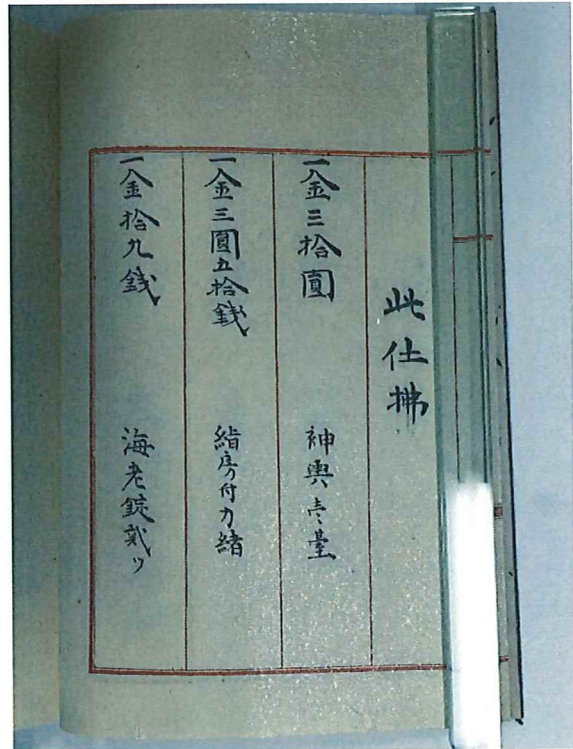 此仕拂
一金三拾圓 神輿壱臺
一金三圓五拾銭 房付力緒
一金拾九銭 海老錠貮ツ